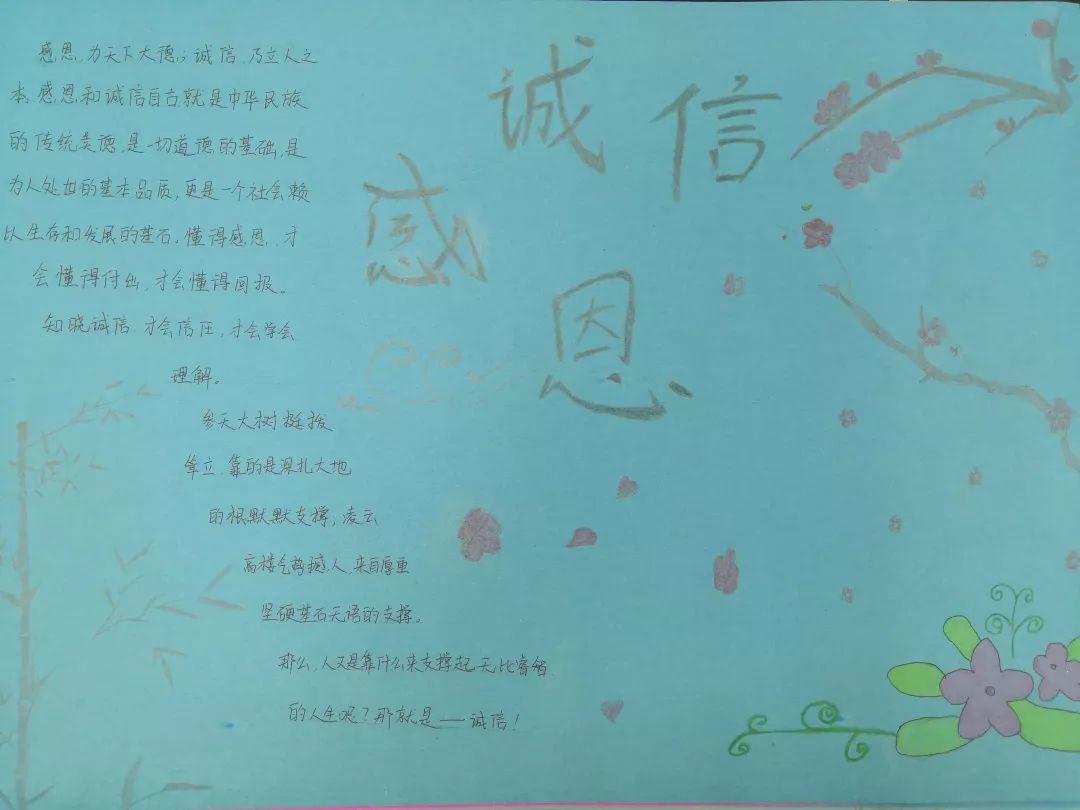 诚信
感恩
感恩,为天下大德;诚信,乃立人之
本,感恩和诚信自古就是中华民族
的传统美德,是一切道德的基础,是
为人处世的基本品质,更是一个社会赖
以生存和发展的基石。懂得感恩,才
会懂得付出,才会懂得回报。
知晓诚信,才会信任,才会学会
理解。
参天大树挺拔
耸立,靠的是深扎大地
的根默默支撑,凌云
高楼气势撼人,来自厚重
坚硬基石无语的支撑。
那么,人又是靠什么来支撑起无比睿智
的人生呢?那就是——诚信!